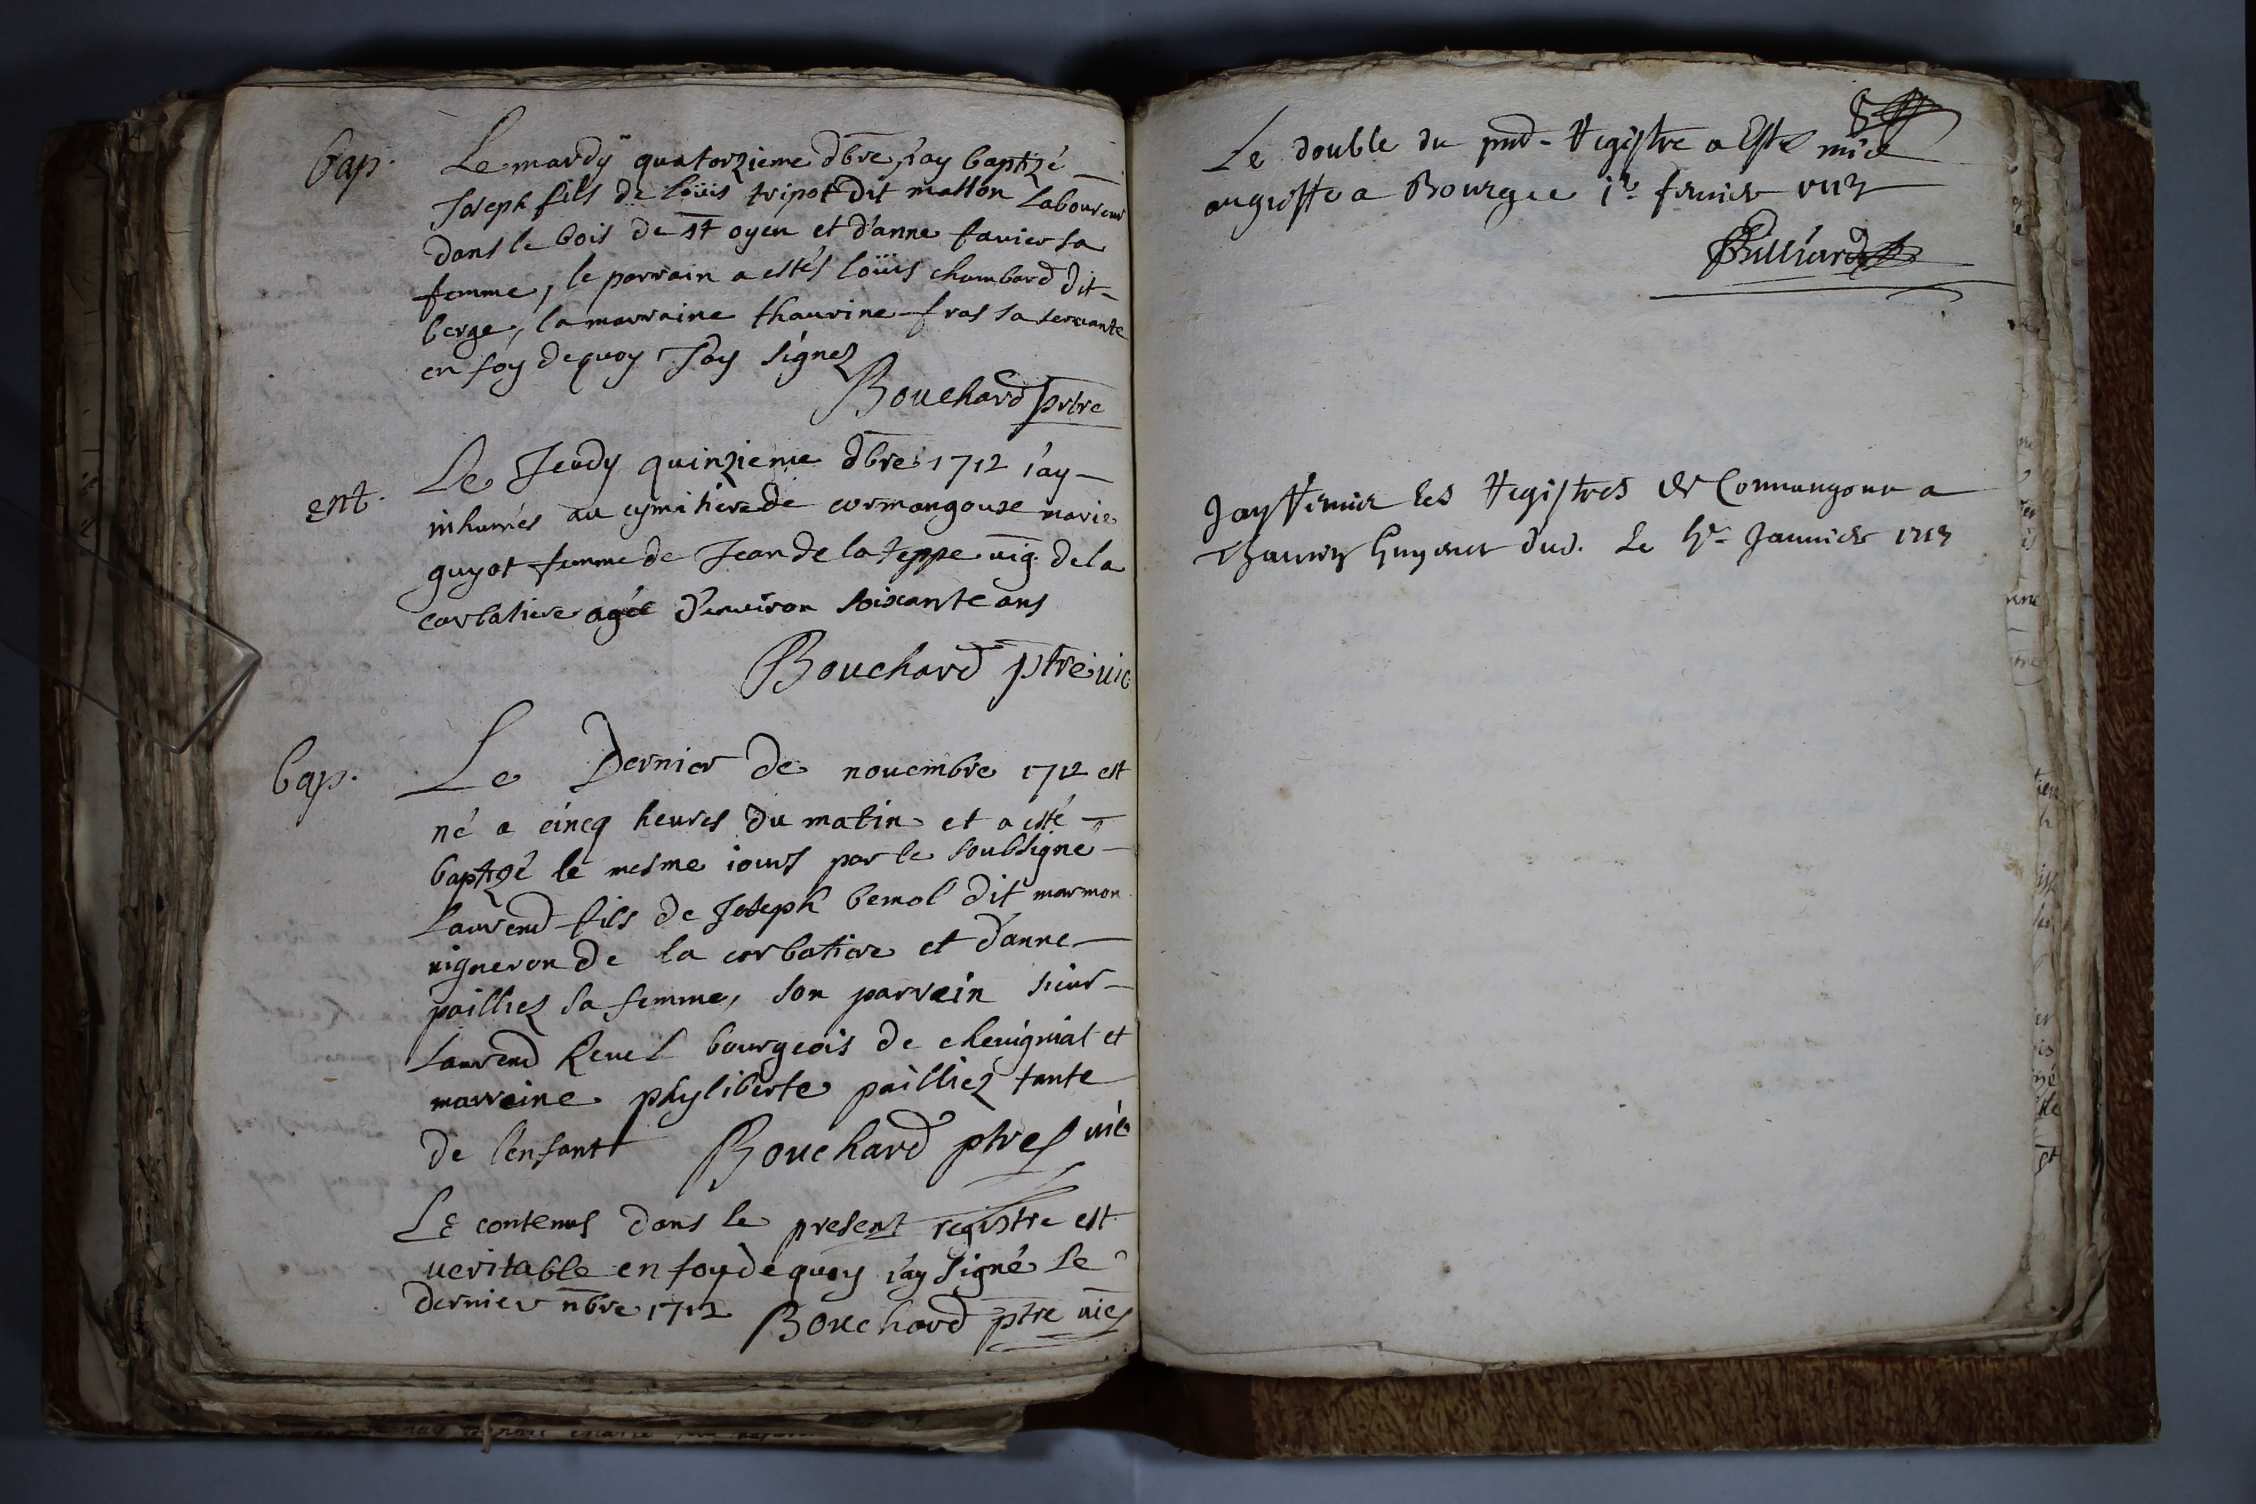 bap.
Le mardÿ quatorzieme dbre j'ay baptizé
Joseph fils de loüis tripot dit mallon laboureur
dans le bois de st oyen et d'anne favier sa
femme, le parrain a estés loüis chambard dit
berge, la marraine thaurine fras sa servante
en foy dequoy J'ay signez
Bouchard prtre
ent.
Le Jeudy quinzieme dbre 1712 i'ay
inhumés au cymitiere de cormangouse marie
guyot femme de Jean de la teppe vig. de la
corbatiere agée d'environ soixante ans
Bouchard ptre vic
bap.
Le Dernier de novembre 1712 est
né a cincq heures du matin et a esté
baptizé le mesme iours par le soubsigne
laurend fils de Joseph bemol dit marmon
vigneron de la corbatiere et d'anne
pailliez sa femme, son parrein sieur
laurend Revel bourgeois de chevigniat et
marreine phyliberte pailliez tante
de l'enfant Bouchard ptre vic
Le contenus dans le present registre est
veritable en foy de quoy i'ay signé le
dernier nbre 1712 Bouchard ptre vic
Le double du pnt Registre a Esté mis
au greffe a Bourg le fevrier
J'ay les Registres de a
Le Janvier 1713